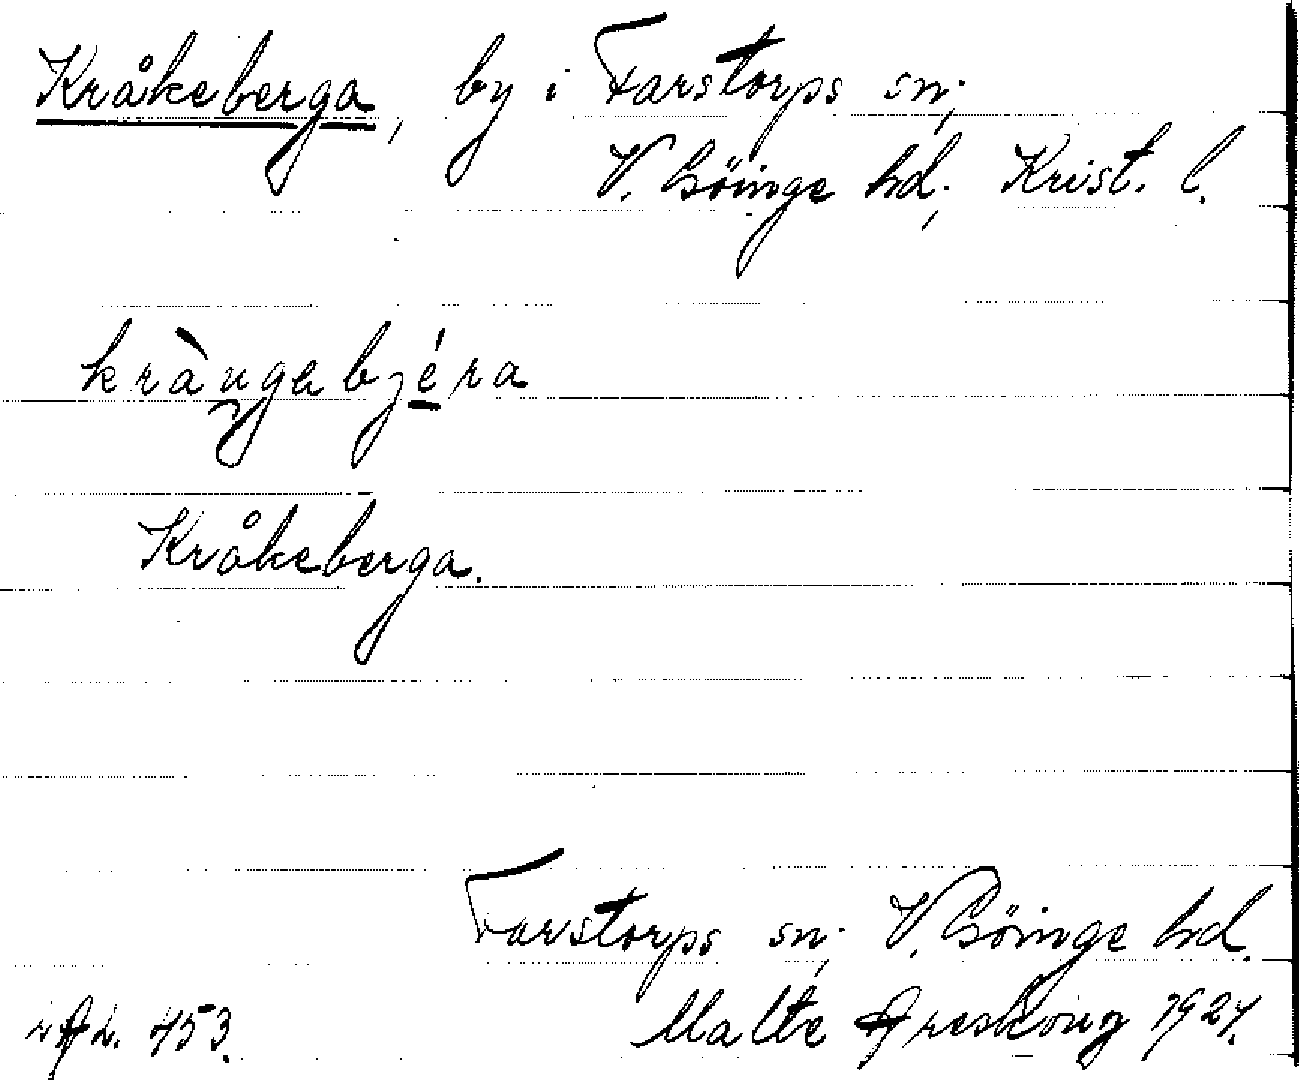 Kråkeberga, by i Farstorps sn,
V. Göinge hd, Krist. l.
kràngabjéra
Kråkeberga.
Farstorps sn, V. Göinge hd.
453. Malte Areskoug 1927.